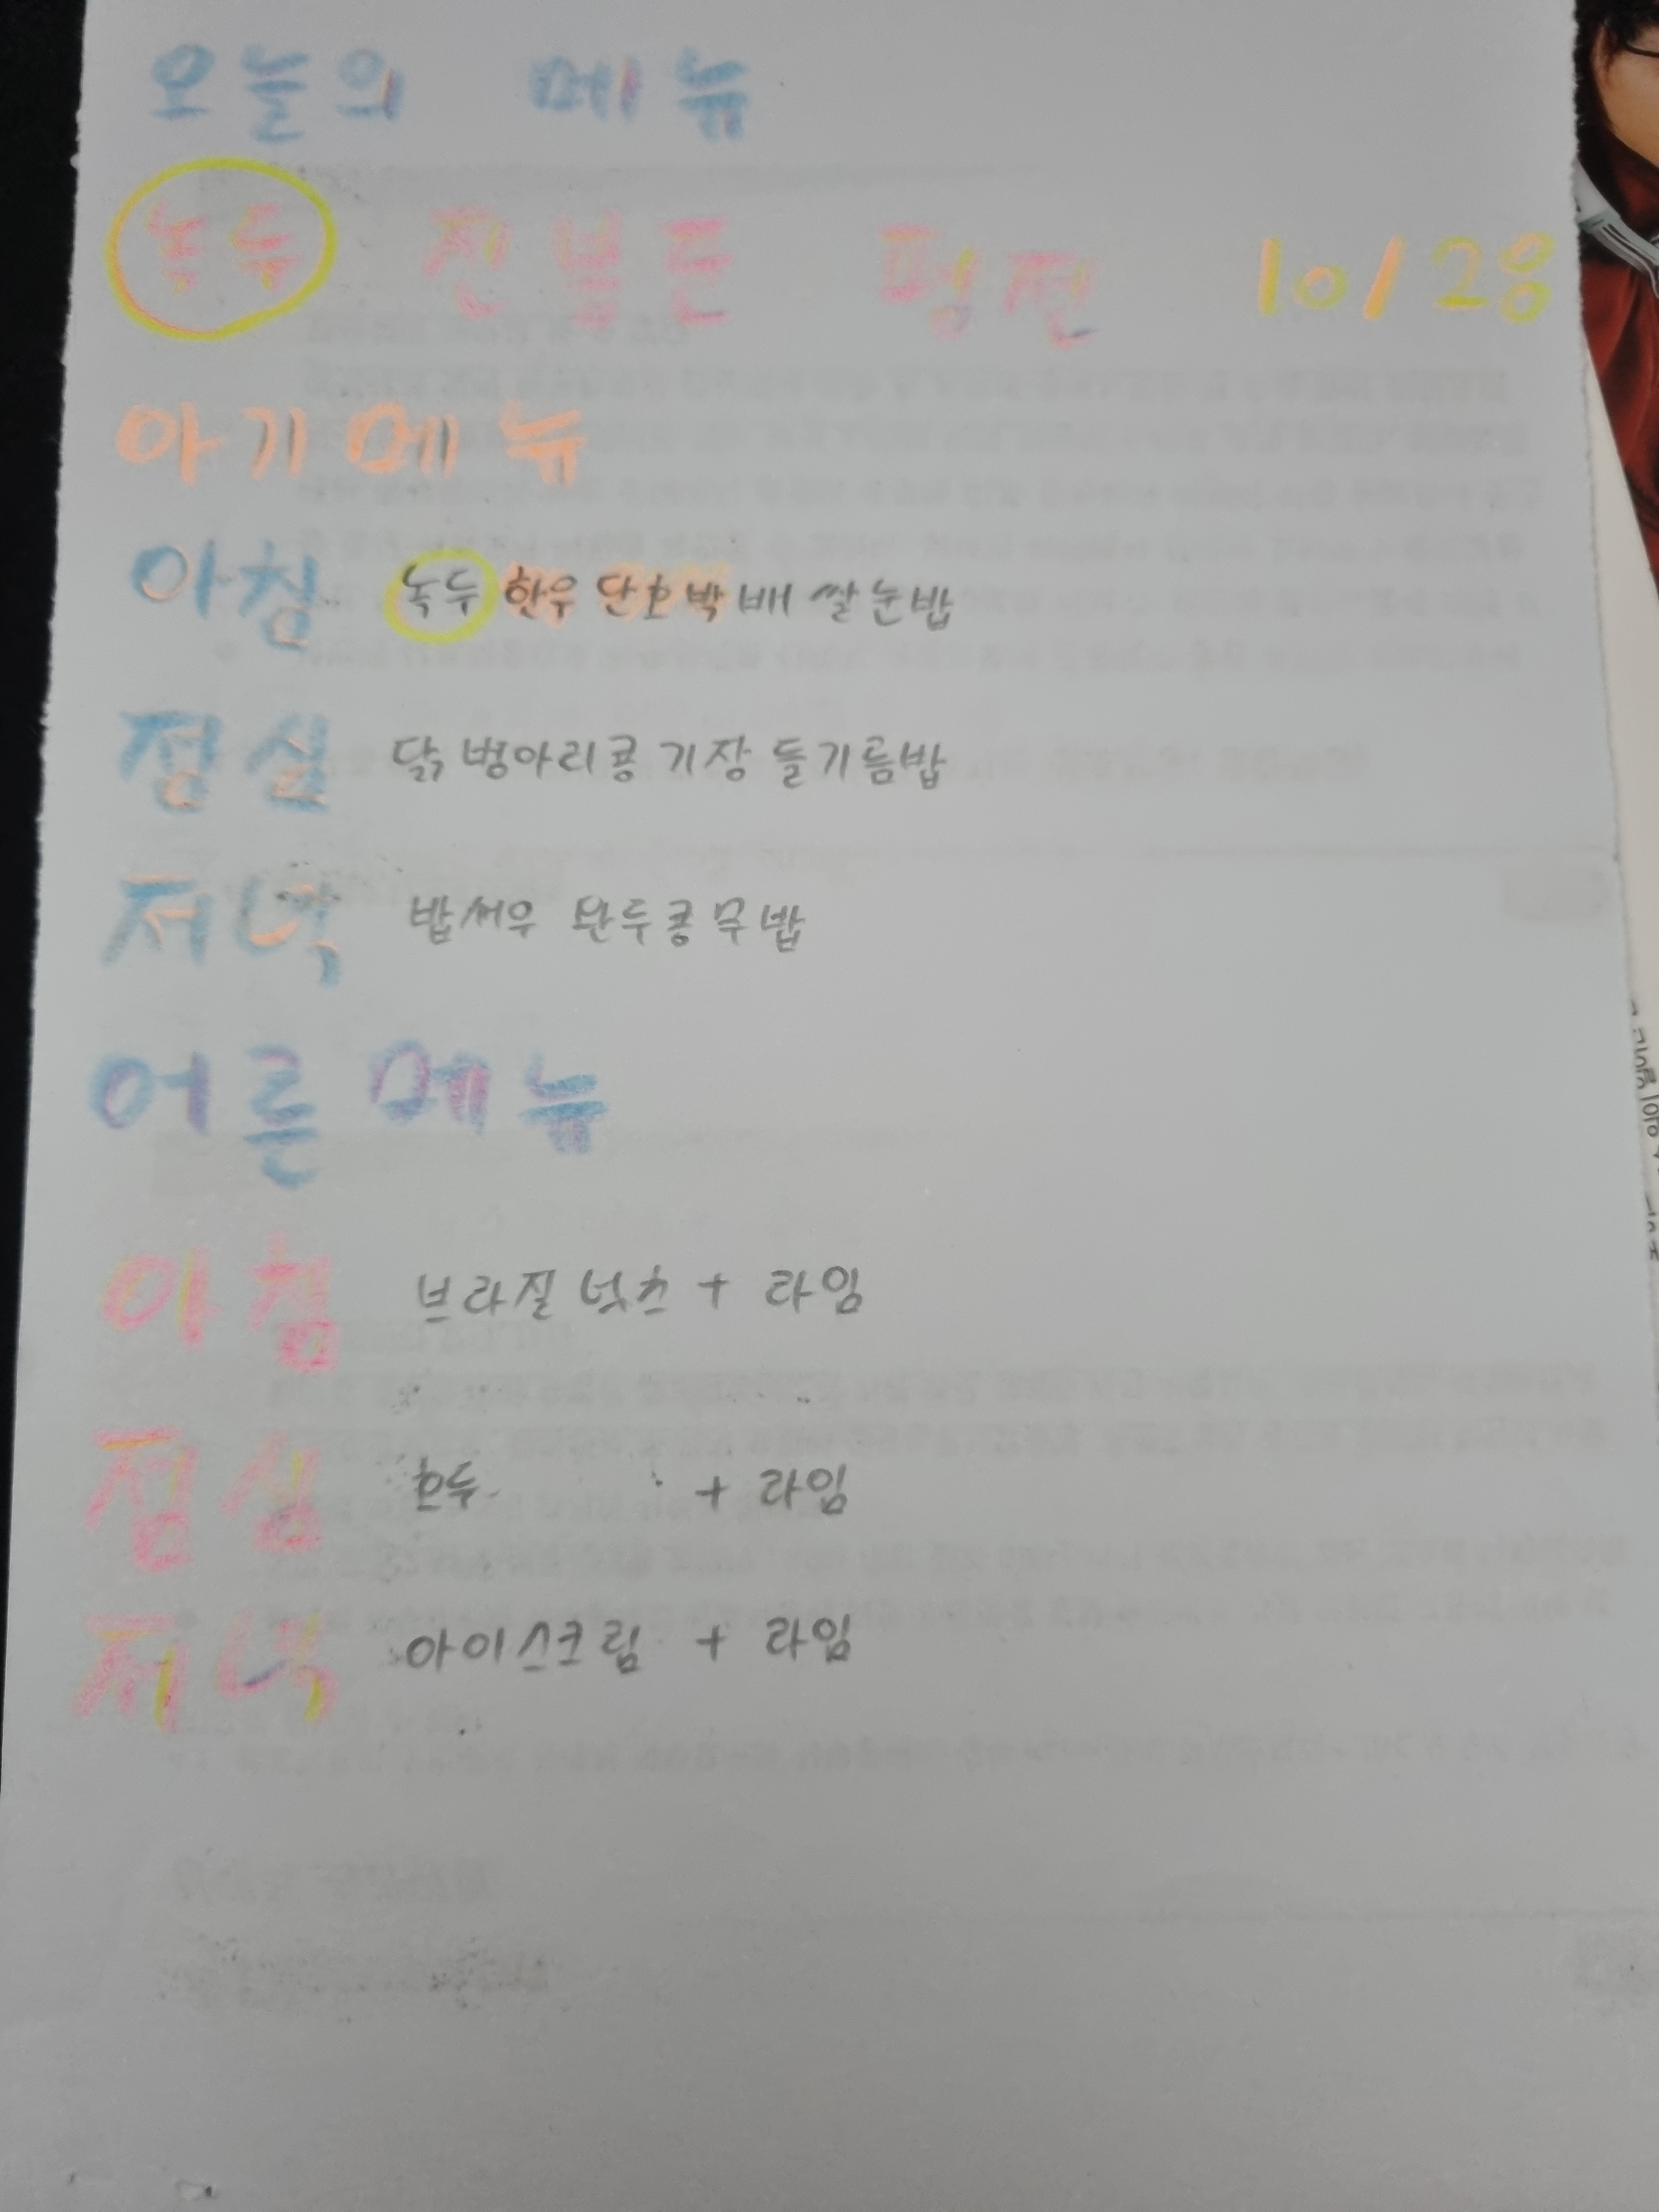 오늘의 메뉴
녹두 전봉준 평전 10/28
아기메뉴
아침 녹두 한우 단호박 배 쌀눈밥
점심 닭 병아리콩 기장 들기름밥
저녁 밥새우 완두콩무밥
어른메뉴
아침 브라질넛츠 + 라임
점심 호두 + 라임
저녁 아이스크림 + 라임